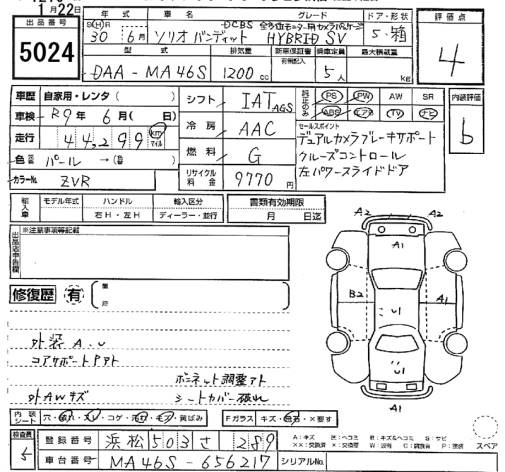 1月22日
出品番号
5024
年式 車名 グレード ドア・形状 評価点
30 6月 ソリオバンディット HYBRID SV 5・箱
DCBS 全方位モニター用カメラパッケージ
型式 排気量 乗車定員 最大積載量
DAA-MA46S 1200 cc 5人 kg
4
車歴 自家用・レンタ( )
シフト IAT AGS
PS PW AW SR
ABS エアB TV ナビ
内装評価
b
車検 R9年 6月( 日)
冷房 AAC
セールスポイント
デュアルカメラブレーキサポート
走行 44,299 km マイル
燃料 G
クルーズコントロール
色 パール →( )
リサイクル料金 9770円
左パワースライドドア
カラーNo. ZVR
輸入車 モデル年式 ハンドル 輸入区分 書類有効期限
右H・左H ディーラー・並行 月 日迄
※注意事項等記載
出品店申告欄
A2 A2
A1
B2 U1
U1
A1
修復歴 有
外装 A.U
コアサポートPアト
ボンネット調整アト
外AWキズ シートカバー破れ
内装シート 穴・切れ・スレ・コゲ・汚れ・モケ・黄ばみ Fガラス キズ・飛石・×要す
スペア
検査員 5
登録番号 浜松503さ289
車台番号 MA46S-656217 シリアルNo.
A:キズ E:ヘコミ B:キズ&ヘコミ S:サビ